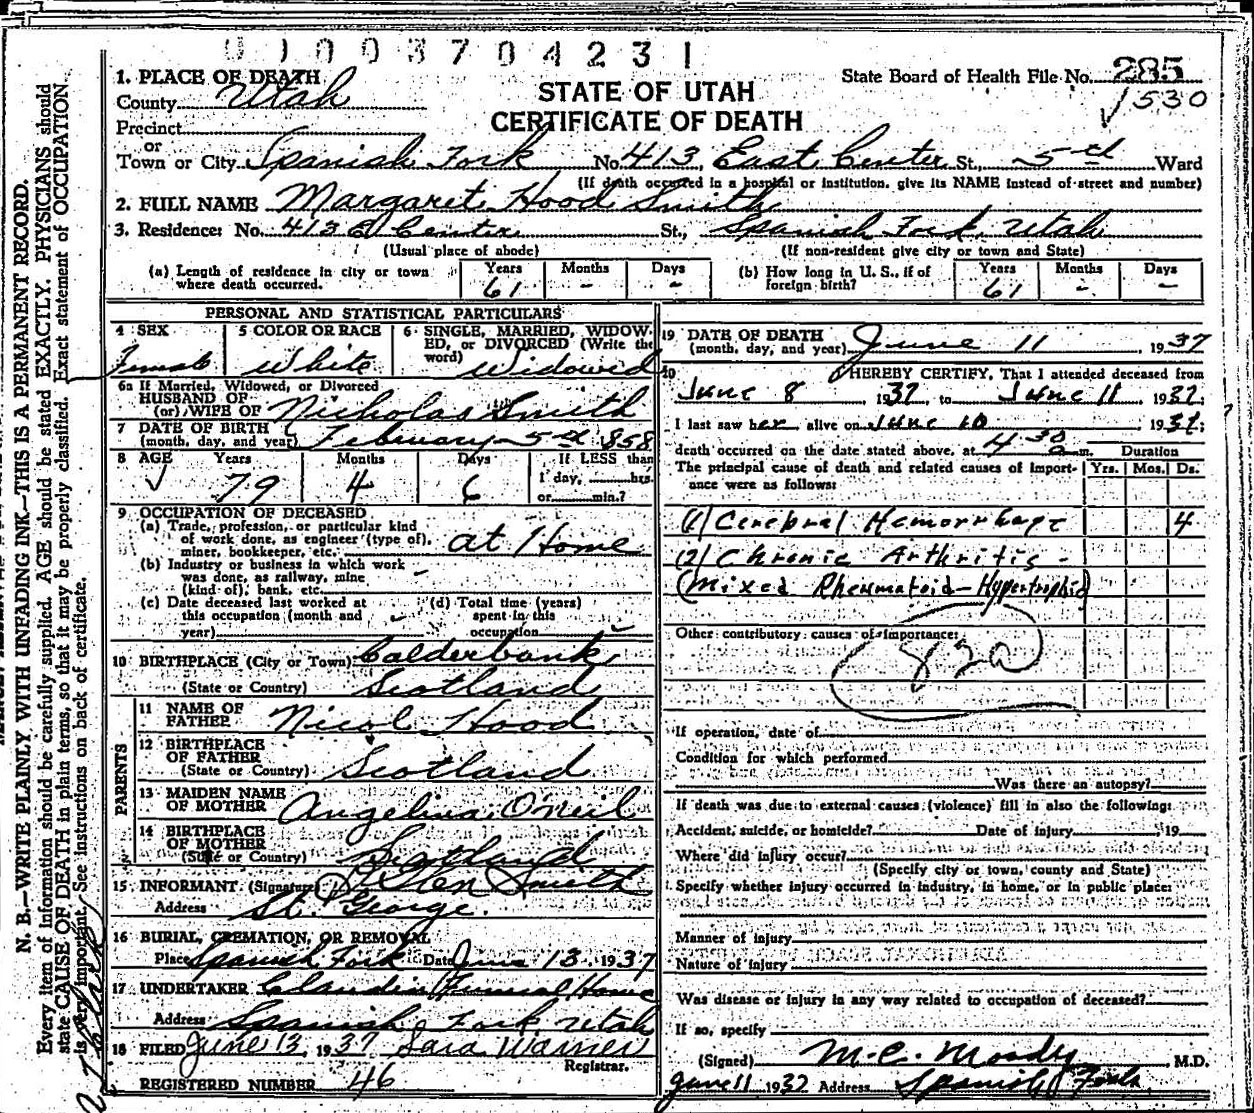 0 1 0 0 3 7 0 4 2 3 1
State Board of Health File No. 285
√ 530
STATE OF UTAH
CERTIFICATE OF DEATH
1. PLACE OF DEATH
County Utah
Precinct
or
Town or City Spanish Fork No. 413, East Center St. 5th Ward
(If death occurred in a hospital or institution, give its NAME instead of street and number)
2. FULL NAME Margaret Hood Smith
3. Residence: No. 413 E Center St., Spanish Fork, Utah
(Usual place of abode) (If non-resident give city or town and State)
(a) Length of residence in city or town where death occurred. Years 61 Months - Days -
(b) How long in U. S., if of foreign birth? Years 61 Months - Days -
PERSONAL AND STATISTICAL PARTICULARS
4 SEX Female
5 COLOR OR RACE White
6 SINGLE, MARRIED, WIDOWED, or DIVORCED (Write the word) Widowed
6a If Married, Widowed, or Divorced
HUSBAND OF
(or) WIFE OF Nicholas Smith
7 DATE OF BIRTH
(month, day, and year) February 5th 1858
8 AGE Years 79 Months 4 Days 6 If LESS than
1 day, hrs.
or min.?
9 OCCUPATION OF DECEASED
(a) Trade, profession, or particular kind
of work done, as engineer (type of),
miner, bookkeeper, etc. at Home
(b) Industry or business in which work
was done, as railway, mine
(kind of), bank, etc.
(c) Date deceased last worked at
this occupation (month and
year)
(d) Total time (years)
spent in this
occupation
10 BIRTHPLACE (City or Town) Calderbank
(State or Country) Scotland
PARENTS
11 NAME OF
FATHER Nicol Hood
12 BIRTHPLACE
OF FATHER
(State or Country) Scotland
13 MAIDEN NAME
OF MOTHER Angelina O'Neil
14 BIRTHPLACE
OF MOTHER
(State or Country) Scotland
15 INFORMANT (Signature) Glen Smith
Address St. George.
16 BURIAL, CREMATION, OR REMOVAL
Place Spanish Fork Date June 13 1937
17 UNDERTAKER Claudin Funeral Home
Address Spanish Fork Utah
18 FILED June 13, 1937 Sara Warner
Registrar.
REGISTERED NUMBER 46
19 DATE OF DEATH
(month, day, and year) June 11, 1937
20 I HEREBY CERTIFY, That I attended deceased from
June 8 1937, to June 11 1937.
I last saw her alive on June 10 1937;
death occurred on the date stated above, at 4 30 a m. Duration
The principal cause of death and related causes of importance were as follows: Yrs. Mos. Ds.
(1) Cerebral Hemorrhage 4
(2) Chronic Arthritis -
(Mixed Rheumatoid-Hypertrophic)
Other contributory causes of importance:
82a
If operation, date of
Condition for which performed
Was there an autopsy?
If death was due to external causes (violence) fill in also the following:
Accident, suicide, or homicide? Date of injury , 19
Where did injury occur?
(Specify city or town, county and State)
Specify whether injury occurred in industry, in home, or in public place:
Manner of injury
Nature of injury
Was disease or injury in any way related to occupation of deceased?
If so, specify
(Signed) M. C. Moody M.D.
June 11 1937 Address Spanish Fork
N. B.—WRITE PLAINLY WITH UNFADING INK—THIS IS A PERMANENT RECORD.
Every item of information should be carefully supplied. AGE should be stated EXACTLY. PHYSICIANS should
state CAUSE OF DEATH in plain terms, so that it may be properly classified. Exact statement of OCCUPATION
is very important. See instructions on back of certificate.